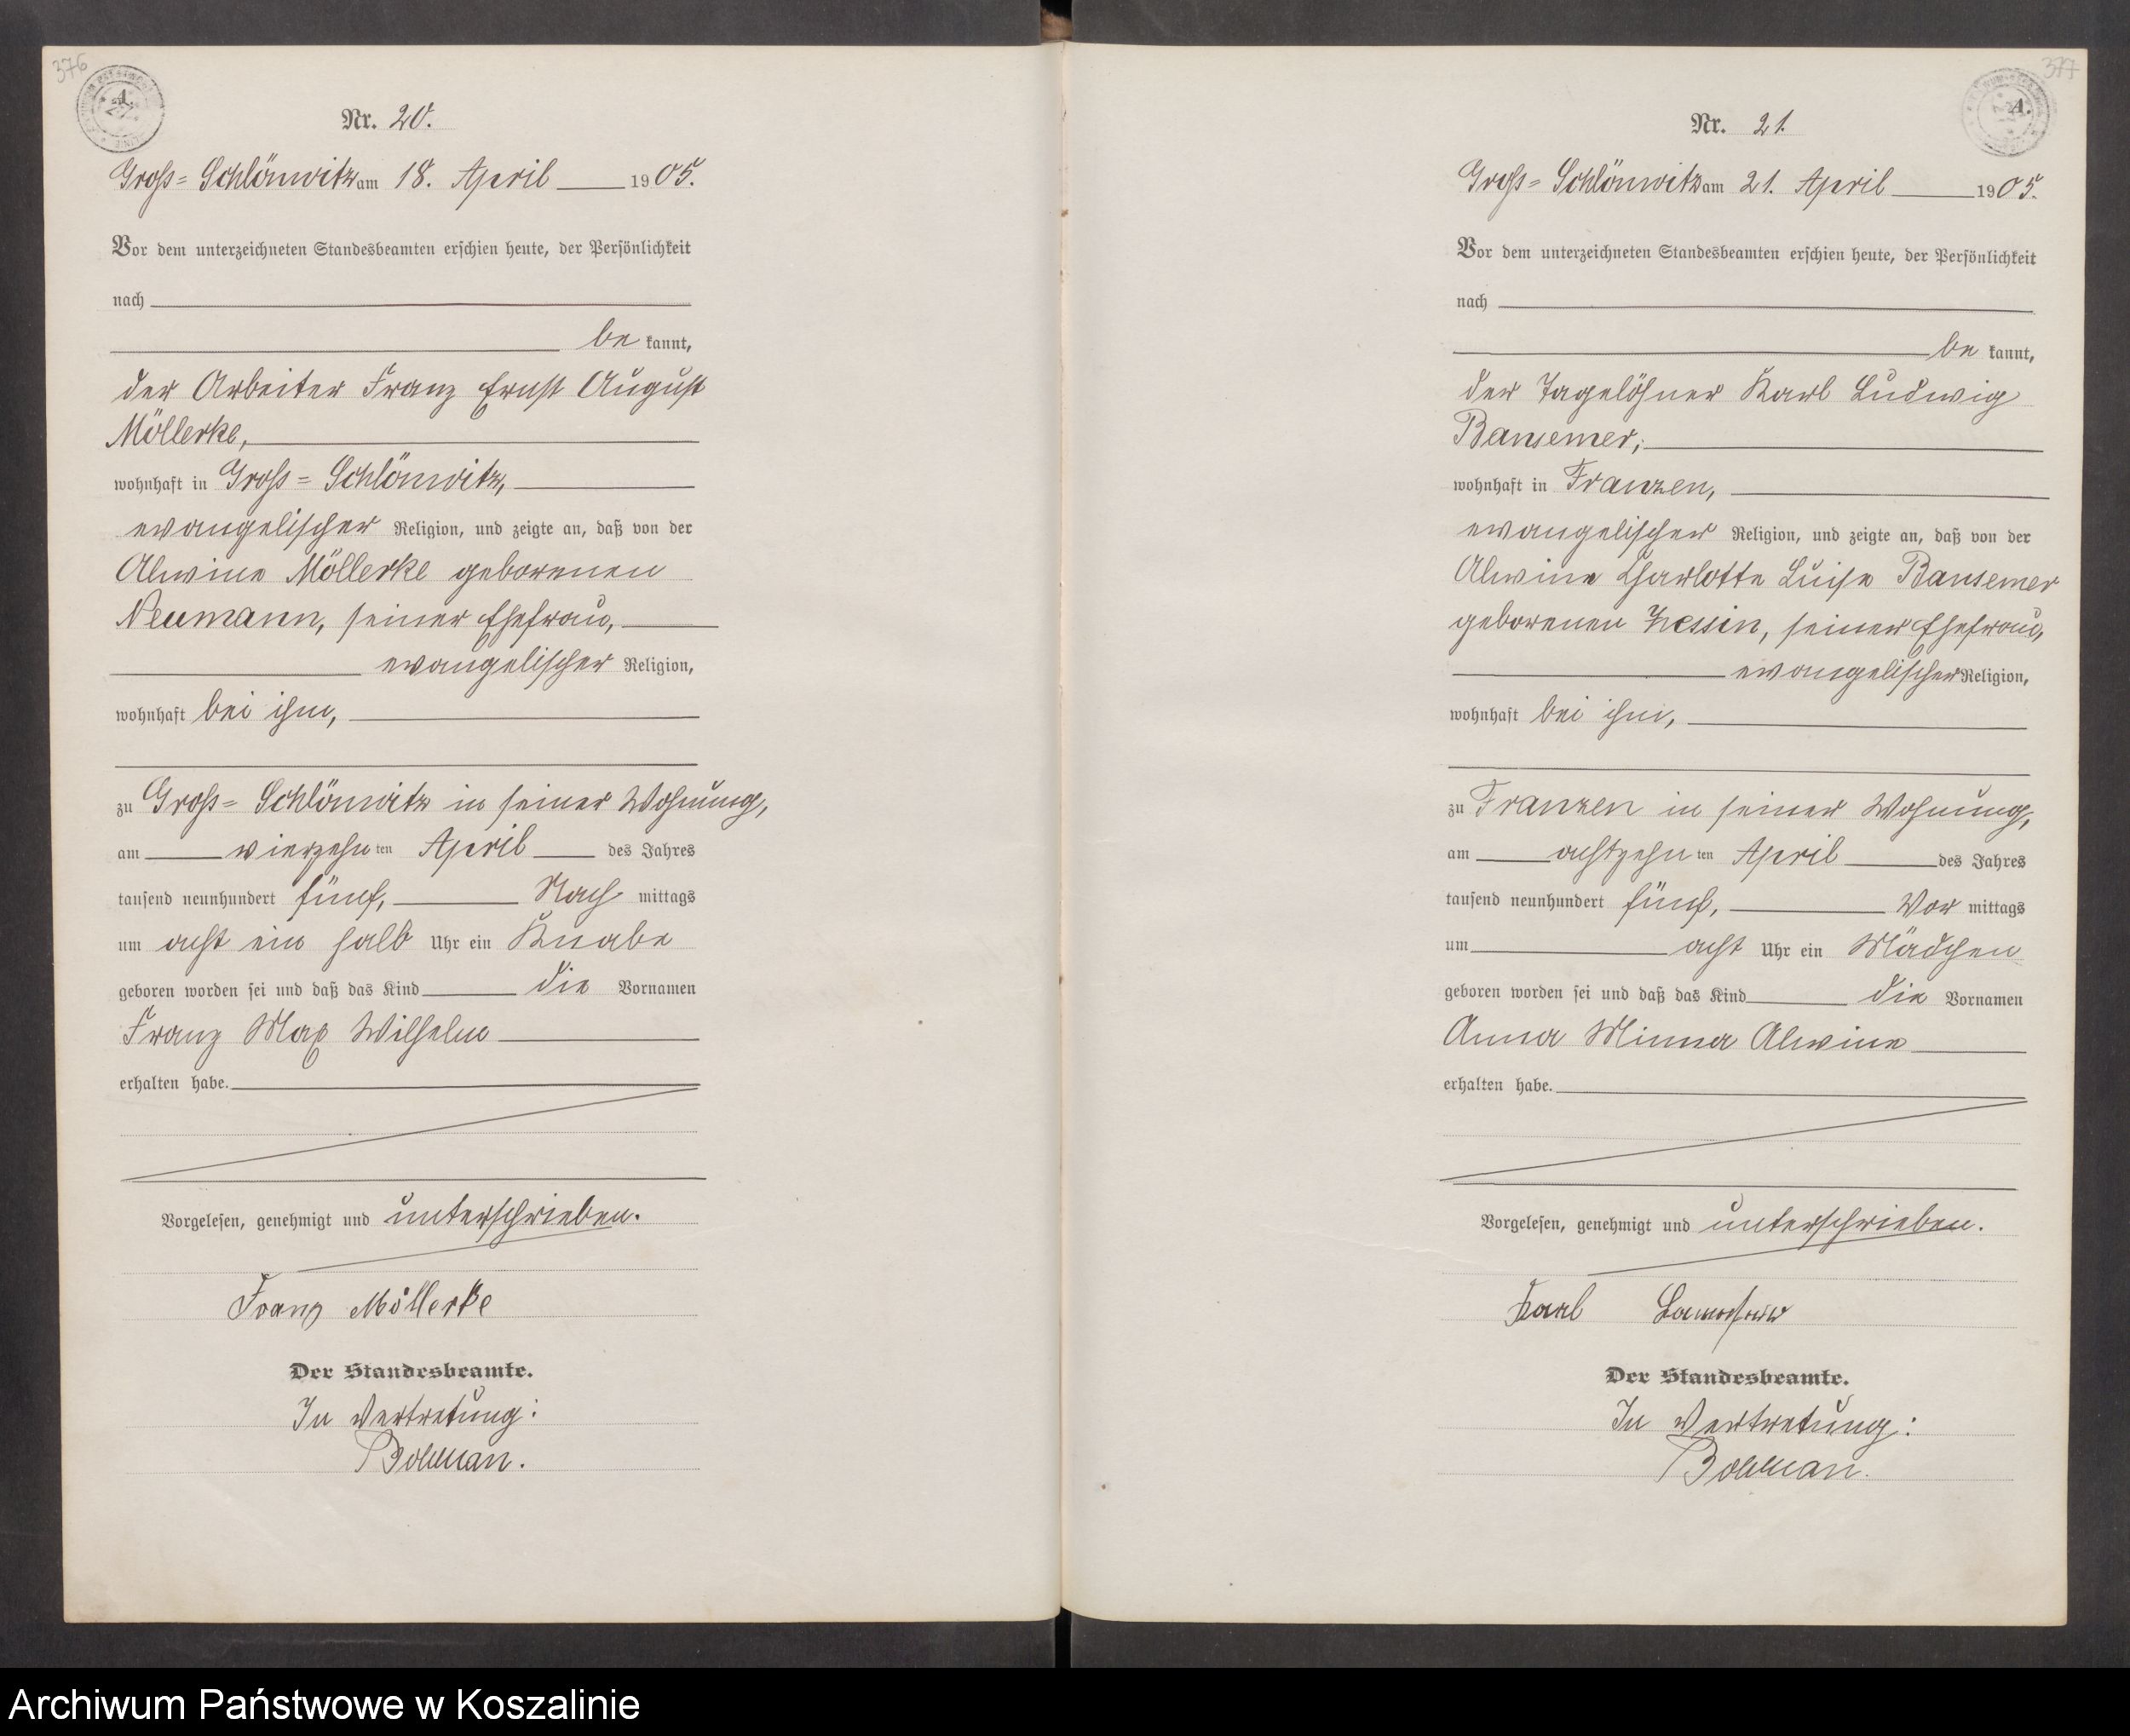 376
A.
Nr. 20.
Groß= Schlönwitz am 18. April 1905.
Vor dem unterzeichneten Standesbeamten erschien heute, der Persönlichkeit
nach
be kannt,
der Arbeiter Franz Ernst August
Möllerke,
wohnhaft in Groß= Schlönwitz,
evangelischer Religion, und zeigte an, daß von der
Alwine Möllerke geborenen
Neumann, seiner Ehefrau,
evangelischer Religion,
wohnhaft bei ihm,
zu Groß= Schlönwitz in seiner Wohnung,
am vierzehn ten April des Jahres
tausend neunhundert fünf, Nach mittags
um acht ein halb Uhr ein Knabe
geboren worden sei und daß das Kind die Vornamen
Franz Max Wilhelm
erhalten habe.
Vorgelesen, genehmigt und unterschrieben.
Franz Möllerke
Der Standesbeamte.
In Vertretung:
377
A.
Nr. 21.
Groß= Schlönwitz am 21. April 1905.
Vor dem unterzeichneten Standesbeamten erschien heute, der Persönlichkeit
nach
be kannt,
der Tagelöhner Karl Ludwig
Bansemer,
wohnhaft in Franzen,
evangelischer Religion, und zeigte an, daß von der
Alwine Charlotte Luise Bansemer
geborenen Zessin, seiner Ehefrau,
evangelischer Religion,
wohnhaft bei ihm,
zu Franzen in seiner Wohnung,
am achtzehn ten April des Jahres
tausend neunhundert fünf, Vor mittags
um acht Uhr ein Mädchen
geboren worden sei und daß das Kind die Vornamen
Anna Minna Alwine
erhalten habe.
Vorgelesen, genehmigt und unterschrieben.
Karl
Der Standesbeamte.
In Vertretung:
Archiwum Państwowe w Koszalinie